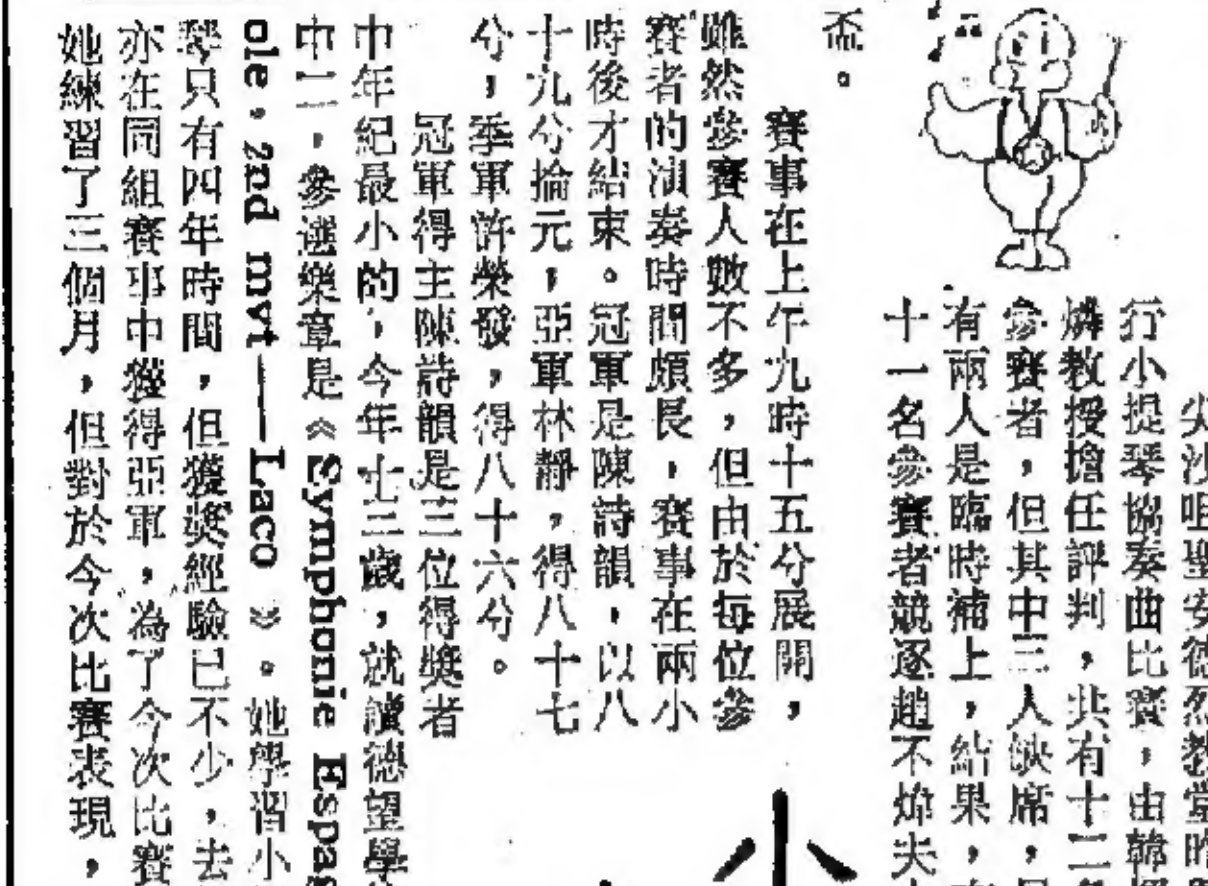 尖沙咀聖安德烈教堂昨
行小提琴協奏曲比賽，由韓
燐教授擔任評判，共有十二
參賽者，但其中三人缺席，
有兩人是臨時補上，結果，
十一名參賽者競逐趙不煒夫
盃。
賽事在上午九時十五分展開，
雖然參賽人數不多，但由於每位參
賽者的演奏時間頗長，賽事在兩小
時後才結束。冠軍是陳詩韻，以八
十九分掄元，亞軍林靜，得八十七
分，季軍許榮發，得八十六分。
冠軍得主陳詩韻是三位得獎者
中年紀最小的，今年十三歲，就讀德望學
中二，參選樂章是《Symphonie Espag
ole，2nd mvt——Laco》。她學習小
琴只有四年時間，但獲獎經驗已不少，去
亦在同組賽事中獲得亞軍，為了今次比賽
她練習了三個月，但對於今次比賽表現，
小